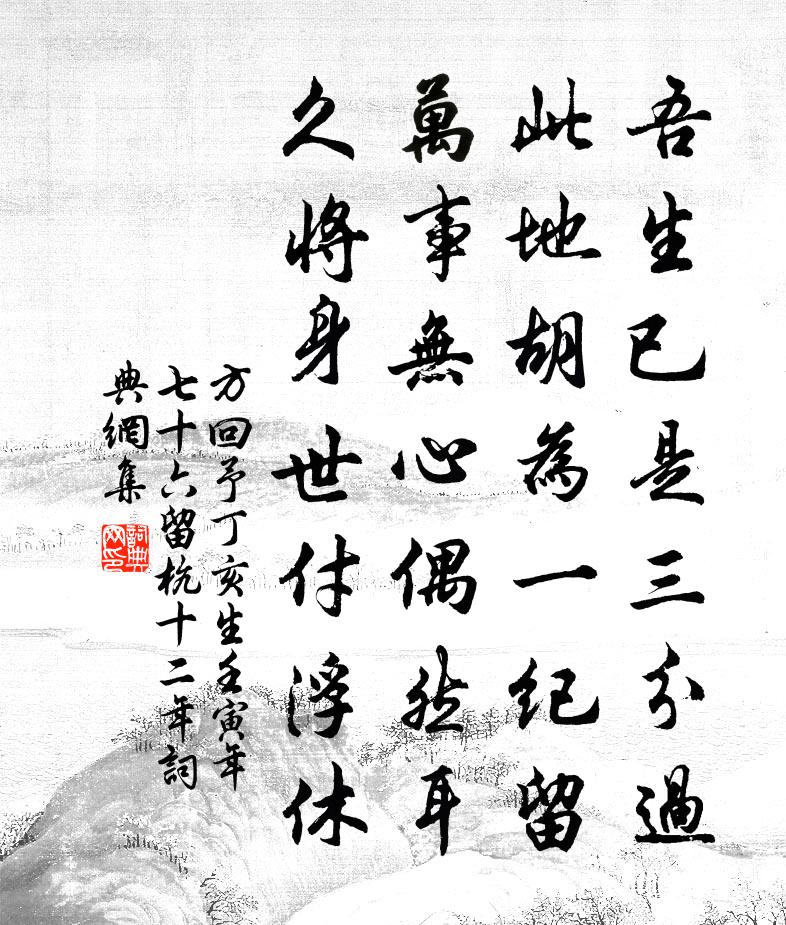 吾生已是三分過
此地胡為一紀留
萬事無心偶然耳
久將身世付浮休
方回予丁亥生壬寅年
七十六留杭十二年詞
典網集
詞典
网印